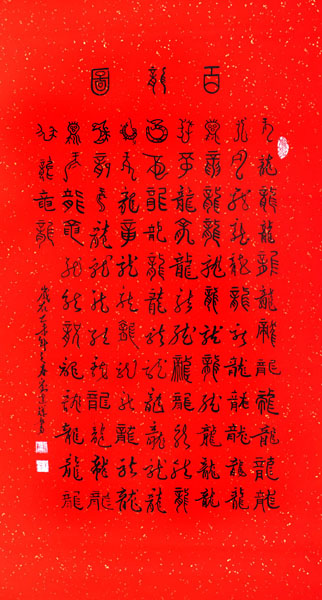 百龍圖
龍龍龍龍龍龍龍龍龍龍龍龍
龍龍龍龍龍龍龍龍龍龍龍龍
龍龍龍龍龍龍龍龍龍龍龍龍
龍龍龍龍龍龍龍龍龍龍龍龍
龍龍龍龍龍龍龍龍龍龍龍龍
龍龍龍龍龍龍龍龍龍龍龍龍
龍龍龍龍龍龍龍龍龍龍龍龍
龍龍龍龍龍龍龍龍龍龍龍龍
龍龍龍龍
歲在